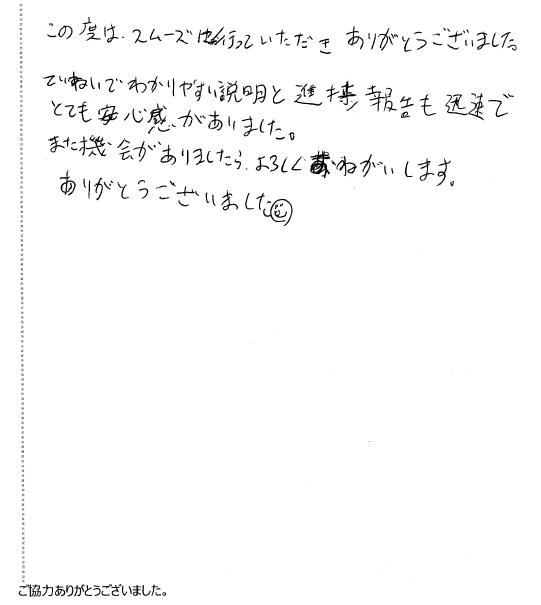 この度は、スムーズに行っていただき ありがとうございました。
ていねいでわかりやすい説明と 進捗 報告も 迅速で
とても安心感がありました。
また機会がありましたら、よろしくおねがいします。
ありがとうございました
ご協力ありがとうございました。